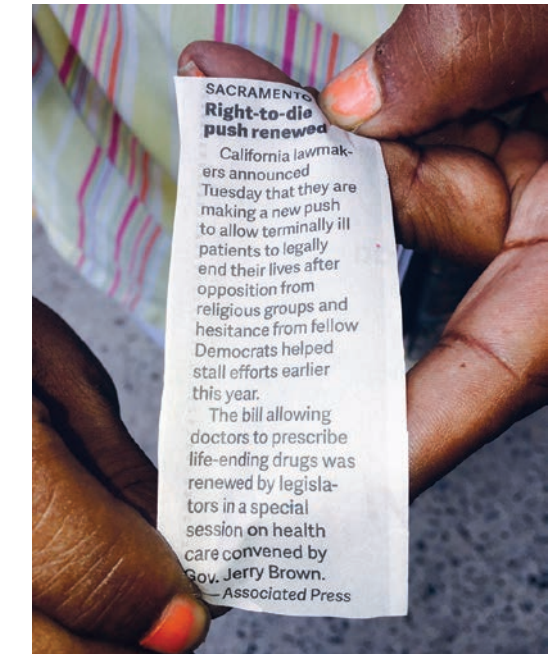 SACRAMENTO
Right-to-die
push renewed
California lawmak-
ers announced
Tuesday that they are
making a new push
to allow terminally ill
patients to legally
end their lives after
opposition from
religious groups and
hesitance from fellow
Democrats helped
stall efforts earlier
this year.
The bill allowing
doctors to prescribe
life-ending drugs was
renewed by legisla-
tors in a special
session on health
care convened by
Gov. Jerry Brown.
— Associated Press